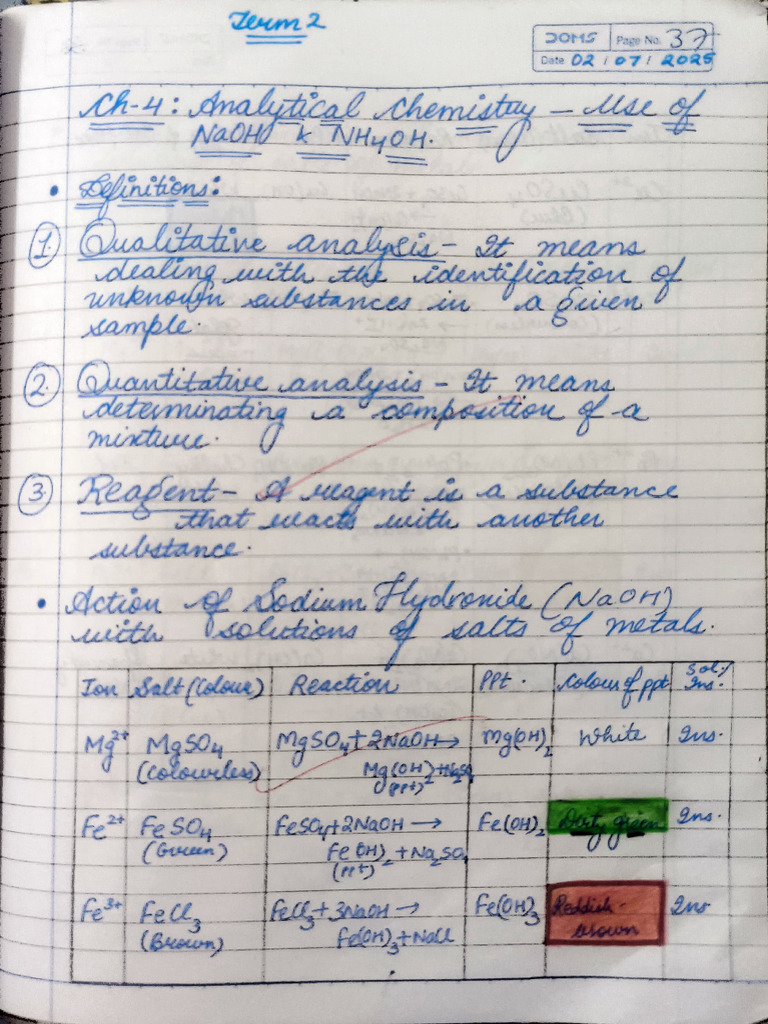 Term 2
DOMS Page No. 37
Date 02 / 07 / 2025
Ch-4: Analytical Chemistry - Use of
NaOH & NH4OH.
• Definitions:
1. Qualitative analysis - It means
dealing with the identification of
unknown substances in a given
sample.
2. Quantitative analysis - It means
determinating a composition of a
mixture.
3. Reagent - A reagent is a substance
that reacts with another
substance.
• Action of Sodium Hydroxide (NaOH)
with solutions of salts of metals.
Ion Salt (Colour) Reaction PPt. Colour of ppt Sol./
Ins.
Mg²⁺ MgSO₄ MgSO₄ + 2NaOH → Mg(OH)₂ White Ins.
(Colourless) Mg(OH)₂ + Na₂SO₄
(ppt)
Fe²⁺ FeSO₄ FeSO₄ + 2NaOH → Fe(OH)₂ Dirty green Ins.
(Green) Fe(OH)₂ + Na₂SO₄
(ppt)
Fe³⁺ FeCl₃ FeCl₃ + 3NaOH → Fe(OH)₃ Reddish- Ins
(Brown) Fe(OH)₃ + NaCl brown